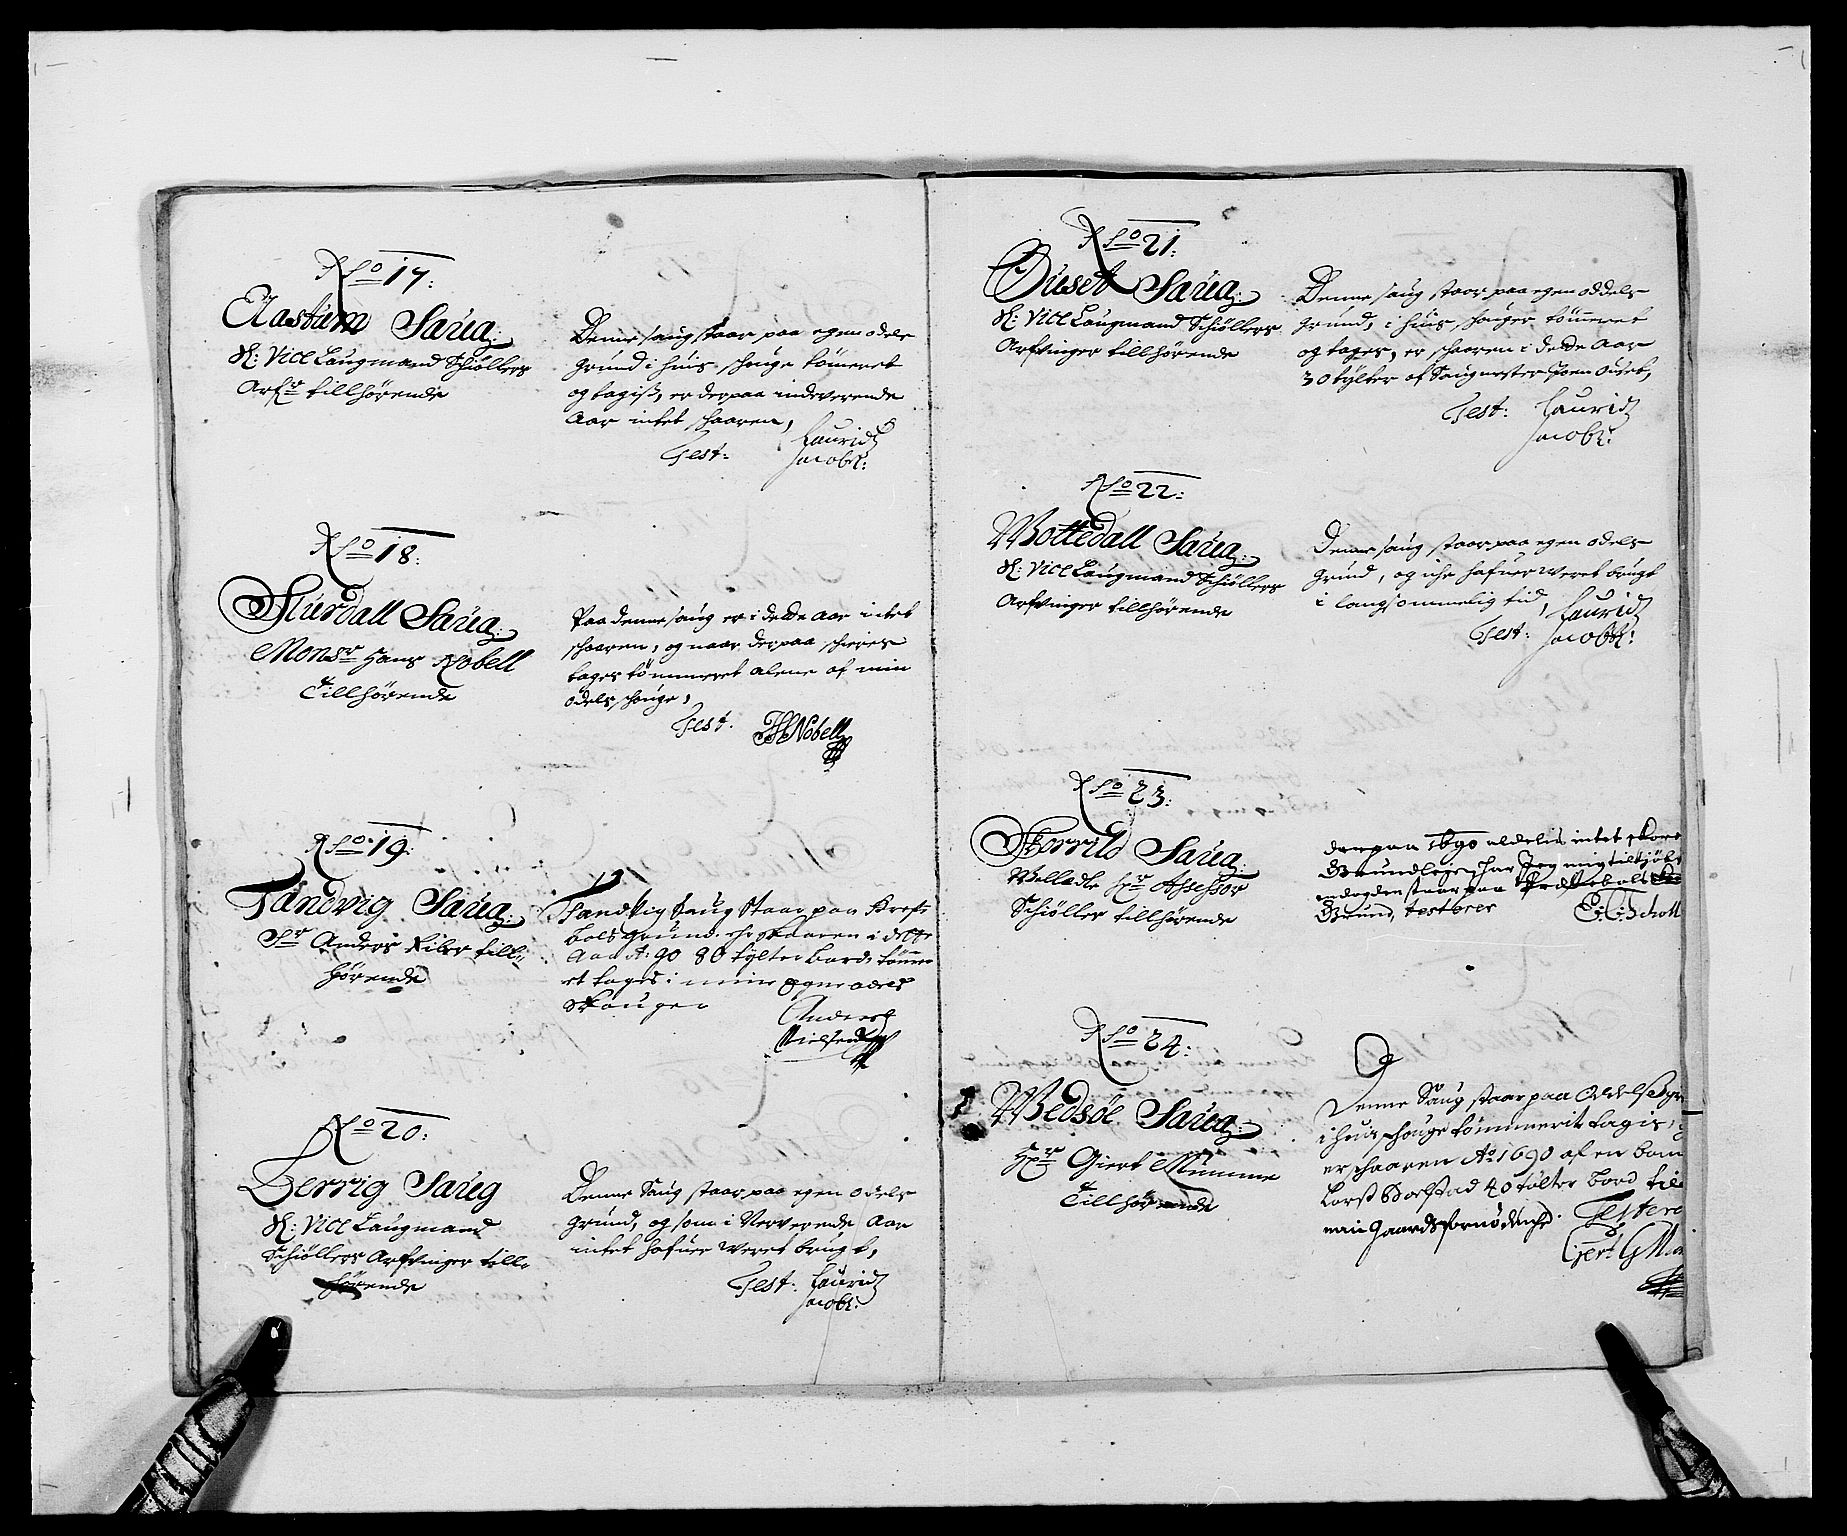 No 17:
Aastum Saug:
Sl: Vice Laugmand Schiøllers
Arfr tillhørende
Denne saug staar paa egen odels
grund i huis schouge tømeret
og tagis, er derpaa indeverende
Aar intet schaaren,
Test: Lauridz
Jacobs:
No 18:
Slurdall Saug:
Monsr Hans Nobell
Tillhørende
Paa denne saug er i dette Aar intet
schaaren, og naar derpaa schieres
tages tømmeret alene af min
odels schouge,
Test. HNobell
No 19:
Tandvig Saug:
Sr Anders Riber till:
hørende
Tandvig Saug Staar paa
bols grund. er skaaren i dette
Aar A: 90 80 tylter bord, tømer
et tages i min egne
Skouger
Anders
Nielsen
No 20:
Berrig Saug
Sl: Vice Laugmand
Schiøllers Arfvinger till:
hørende
Denne Saug staar paa egen odels
grund, og som i Nerverende Aar
intet hafuer weret brugt,
Test: Lauridz
Jacobs:
No 21:
Ouset Saug:
Sl: Vice Laugmand Schiøllers
Arfvinger tillhørende
Denne saug staar paa egen oddels
grund, i huis schouger tømeret
og tages, er schaaren i dette Aar
30 tylter af Saugmester Joen Ouset,
Test: Lauridz
Jacobs:
No 22:
Mottedall Saug:
Sl: Vice Laugmand Schiøllers
Arfvinger tillhørende
Denne saug staar paa egen odels
grund, og iche hafuer weret brugt
i langsommelig tid,
Test: Lauridz
Jacobs:
No 23:
Storrild Saug:
Welladle Hr Assessor
Schiøller tillhørende
derpaa 1690 aldelis intet skore
har Jeg mig tilkjøbt
staar paa
Grund, testerer
No 24:
Wedsøe Saug:
Hr Giert Mumme
Tillhørende
Denne Saug staar paa Oddelseby
i huis schouge tømmerit tagis,
er schaaren Ao 1690 af en
40 tølter bord til
min gaards fornødenhed. Testere
Giert GMu